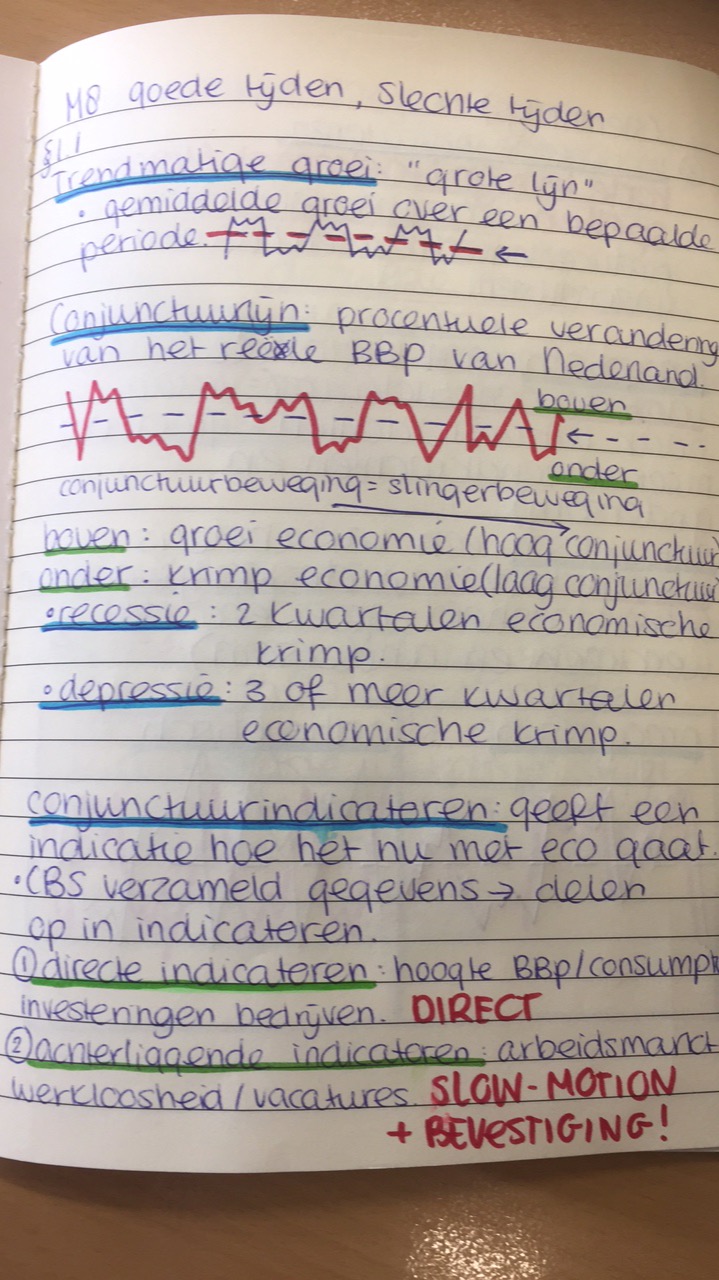 M8 goede tijden, slechte tijden
§1.1
Trendmatige groei: "grote lijn"
• gemiddelde groei over een bepaalde
periode. ←
Conjunctuurlijn: procentuele verandering
van het reële BBP van Nederland.
boven
← - - - -
onder
conjunctuurbeweging = slingerbeweging
boven: groei economie (hoog conjunctuur)
onder: krimp economie (laag conjunctuur
• recessie: 2 kwartalen economische
krimp.
• depressie: 3 of meer kwartalen
economische krimp.
conjunctuurindicateren: geeft een
indicatie hoe het nu met eco gaat.
• CBS verzameld gegevens → delen
op in indicateren.
① directe indicateren: hoogte BBP/consumpt
investeringen bedrijven. DIRECT
② achterliggende indicateren: arbeidsmarkt
werkloosheid/vacatures. SLOW-MOTION
+ BEVESTIGING!